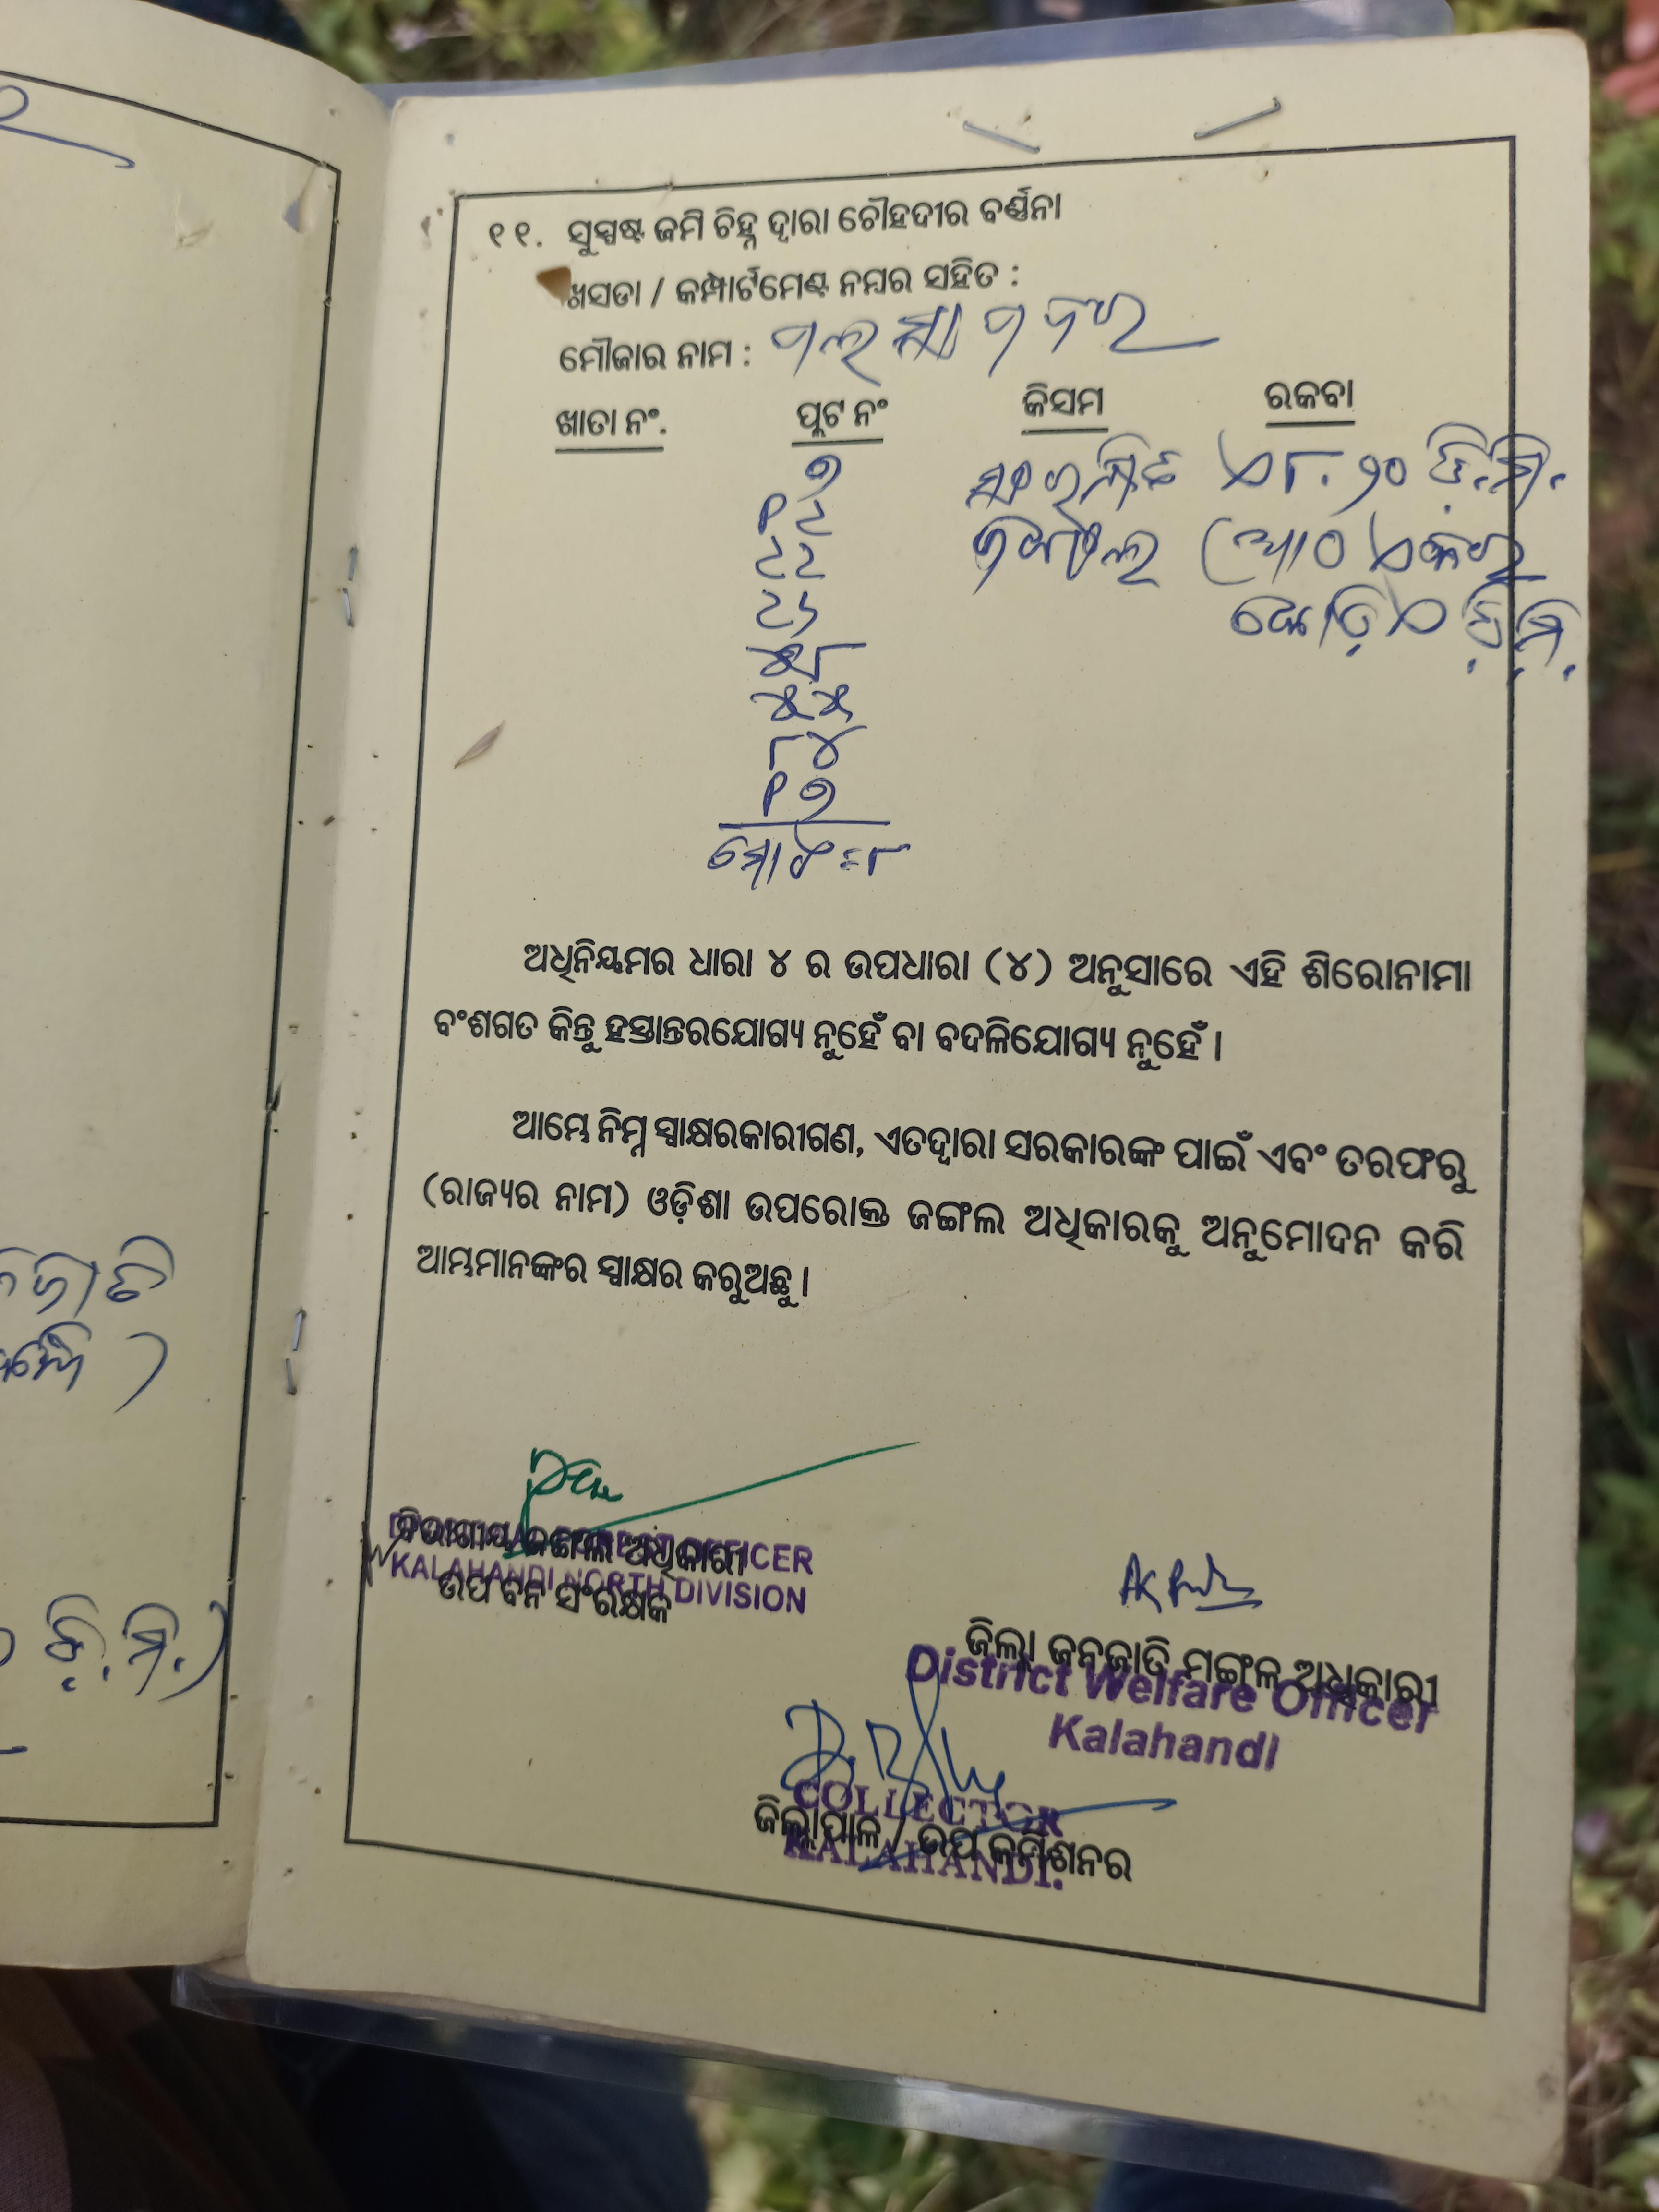 ୧୧. ସୁସ୍ପଷ୍ଟ ଜମି ଚିହ୍ନ ଦ୍ୱାରା ଚୌହଦୀର ବର୍ଣ୍ଣନା
ଖସଡା / କମ୍ପାର୍ଟମେଣ୍ଟ ନମ୍ବର ସହିତ :
ମୌଜାର ନାମ :
ଖାତା ନଂ. ପ୍ଲଟ ନଂ କିସମ ରକବା
୭ ସଂରକ୍ଷିତ ଏ୮.୨୦ ଡି.ମି.
୧୪ ଜଙ୍ଗଲ (ଆଠ ଏକର
କୋଡ଼ିଏ ଡ଼ି.ମି.
୮୪
୧୭
ମୋଟ=୮
ଅଧିନିୟମର ଧାରା ୪ ର ଉପଧାରା (୪) ଅନୁସାରେ ଏହି ଶିରୋନାମା
ବଂଶଗତ କିନ୍ତୁ ହସ୍ତାନ୍ତରଯୋଗ୍ୟ ନୁହେଁ ବା ବଦଳିଯୋଗ୍ୟ ନୁହେଁ ।
ଆମ୍ଭେ ନିମ୍ନ ସ୍ୱାକ୍ଷରକାରୀଗଣ, ଏତଦ୍ୱାରା ସରକାରଙ୍କ ପାଇଁ ଏବଂ ତରଫରୁ
(ରାଜ୍ୟର ନାମ) ଓଡ଼ିଶା ଉପରୋକ୍ତ ଜଙ୍ଗଲ ଅଧିକାରକୁ ଅନୁମୋଦନ କରି
ଆମ୍ଭମାନଙ୍କର ସ୍ୱାକ୍ଷର କରୁଅଛୁ ।
ବିଭାଗୀୟ ଜଙ୍ଗଲ ଅଧିକାରୀ
OFFICER
KALAHANDI NORTH DIVISION
ଉପ ବନ ସଂରକ୍ଷକ
ଜିଲ୍ଲା ଜନଜାତି ମଙ୍ଗଳ ଅଧିକାରୀ
District Welfare Officer
Kalahandi
COLLECTOR
ଜିଲ୍ଲାପାଳ / ଉପ କମିଶନର
KALAHANDI.
ଡ଼ି.ମି.)